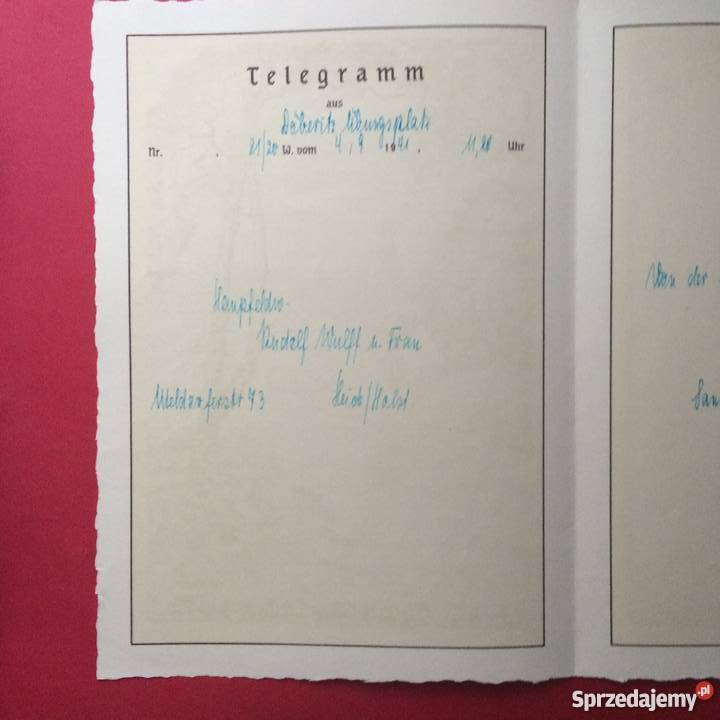 Telegramm
aus
Döberitz Übungsplatz
Nr. . 21/20 W. vom 4, 9 1941. 11,20 Uhr
Hauptfeldw.
Rudolf Wulff u. Frau
Meldorferstr 73 Heide/Holst
Von der
Sprzedajemy.pl